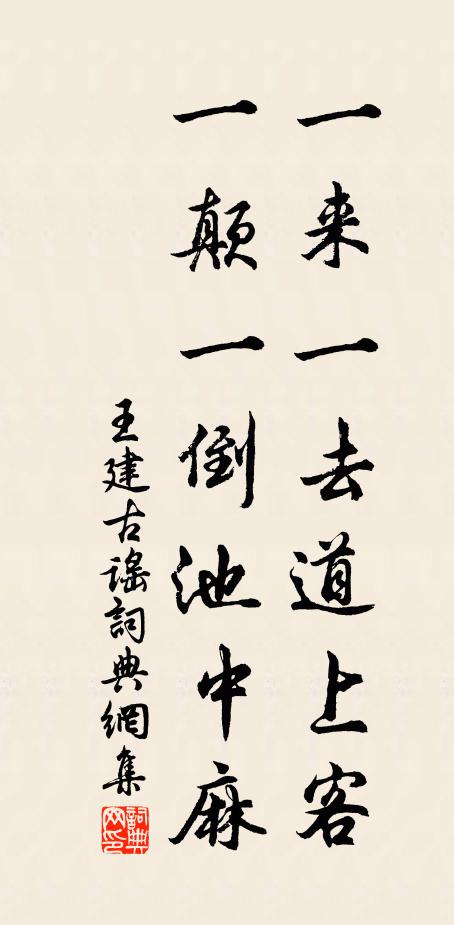 一来一去道上客
一颠一倒池中麻
王建古謠詞典網集
詞典
网印